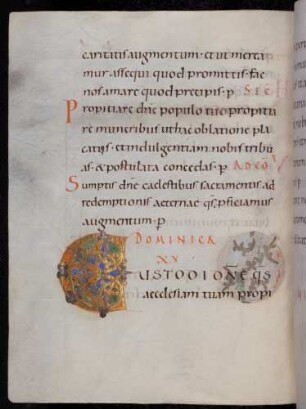 caritatis augmentum · et ut merea
mur assequi quod promittis · fac
nos amare quod precipis · p SECR̄
Propitiare dñe populo tuo propitia
re muneribus · ut hac oblatione pla
catus · et indulgentiam nobis tribu
as · & postulata concedas · p AD CO
Sumptis dñe caelestibus sacramentis ad
redemptionis aeternae q̄s proficiamus
augmentum · p
DOMINICA
XV
CUSTODI DÑE Q̄S
aecclesiam tuam propi